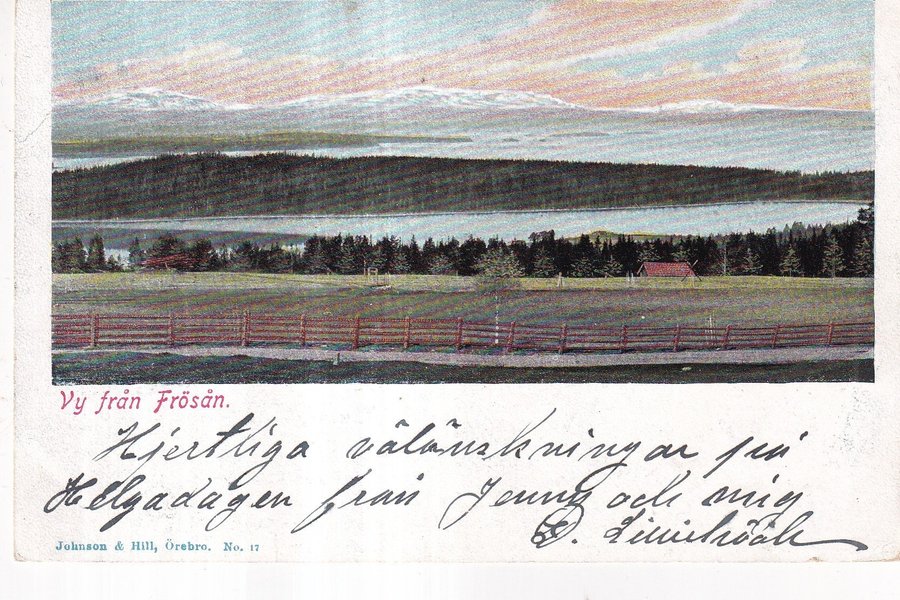 Vy från Frösån.
Hjertliga välänskningar på
Helgadagen från Jenny och mig
D.
Johnson & Hill, Örebro. No. 17